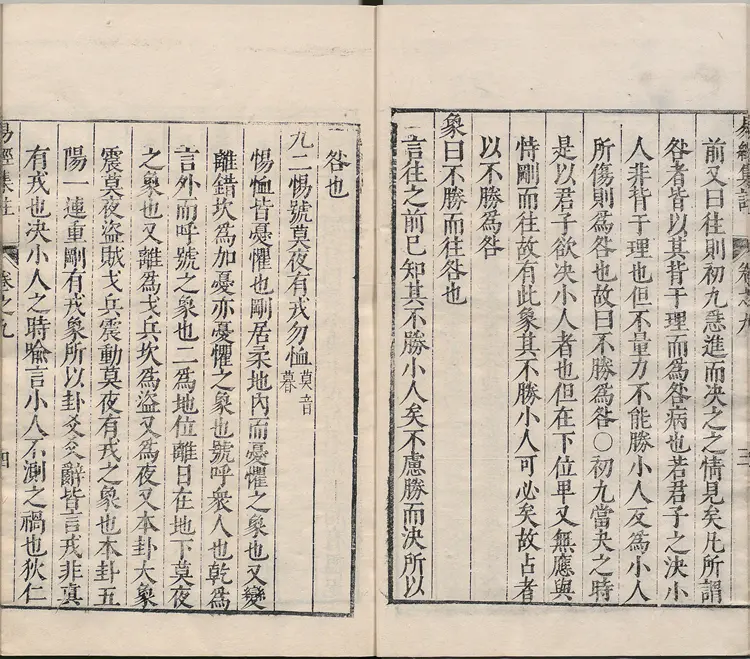 易經集註 卷之九 三
前又曰往則初九急進而決之之情見矣凡所謂
咎者皆以其背于理而為咎病也若君子之決小
人非背于理也但不量力不能勝小人反為小人
所傷則為咎也故曰不勝為咎○初九當夬之時
是以君子欲決小人者也但在下位卑又無應與
恃剛而往故有此象其不勝小人可必矣故占者
以不勝為咎
象曰不勝而往咎也
言往之前已知其不勝小人矣不慮勝而決所以
咎也
九二惕號莫夜有戎勿恤莫音暮
惕恤皆憂懼也剛居柔地內而憂懼之象也又變
離錯坎為加憂亦憂懼之象也號呼眾人也乾為
言外而呼號之象也二為地位離日在地下莫夜
之象也又離為戈兵坎為盜又為夜又本卦大象
震莫夜盜賊戈兵震動莫夜有戎之象也本卦五
陽一連重剛有戎象所以卦爻爻辭皆言戎非真
有戎也決小人之時喻言小人不測之禍也狄仁
易經集註 卷之九 四